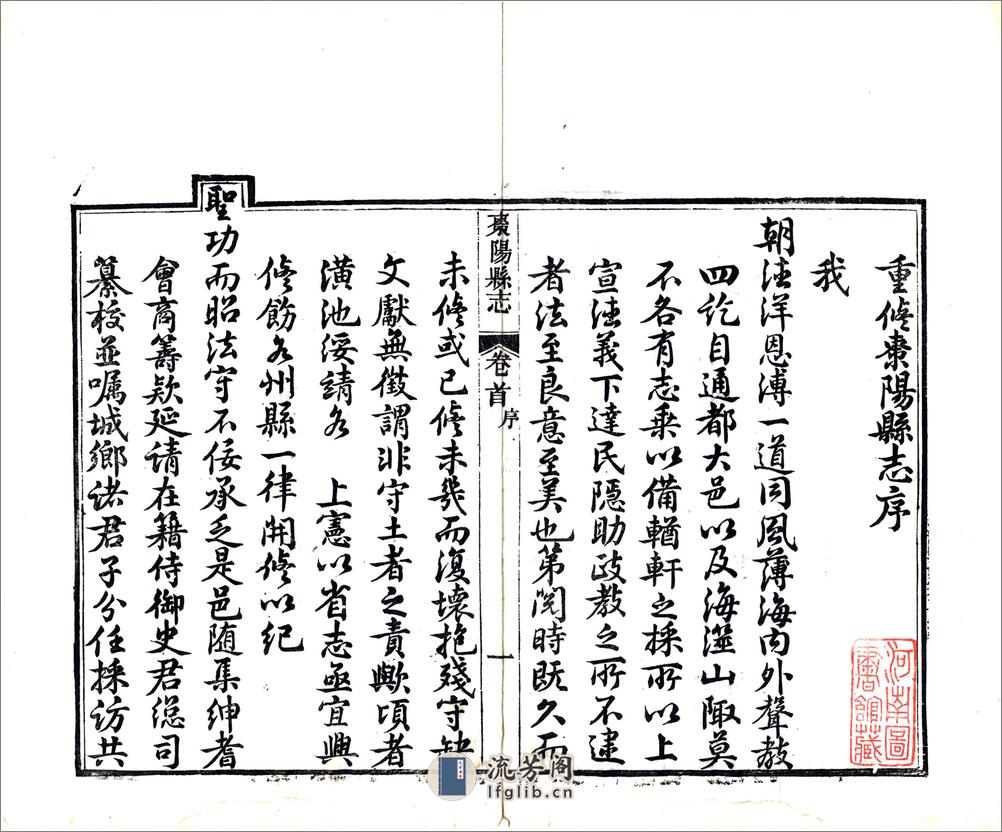 重修棗陽縣志序
我
朝湛洋恩溥一道同風薄海內外聲教
四訖自通都大邑以及海澨山陬莫
不各有志乘以備輶軒之採所以上
宣德義下達民隱助政教之所不逮
者法至良意至美也第閱時既久而
棗陽縣志
卷首
序
一
未修或已修未幾而復壞抱殘守缺
文獻無徵謂非守土者之責歟頃者
潢池綏靖各 上憲以省志亟宜興
修飭各州縣一律開修以紀
聖功而昭法守不佞承乏是邑隨集紳耆
會商籌款延請在籍侍御史君總司
纂校並囑城鄉諸君子分任採訪共
河南圖
書館藏
流芳阁
lfglib.cn